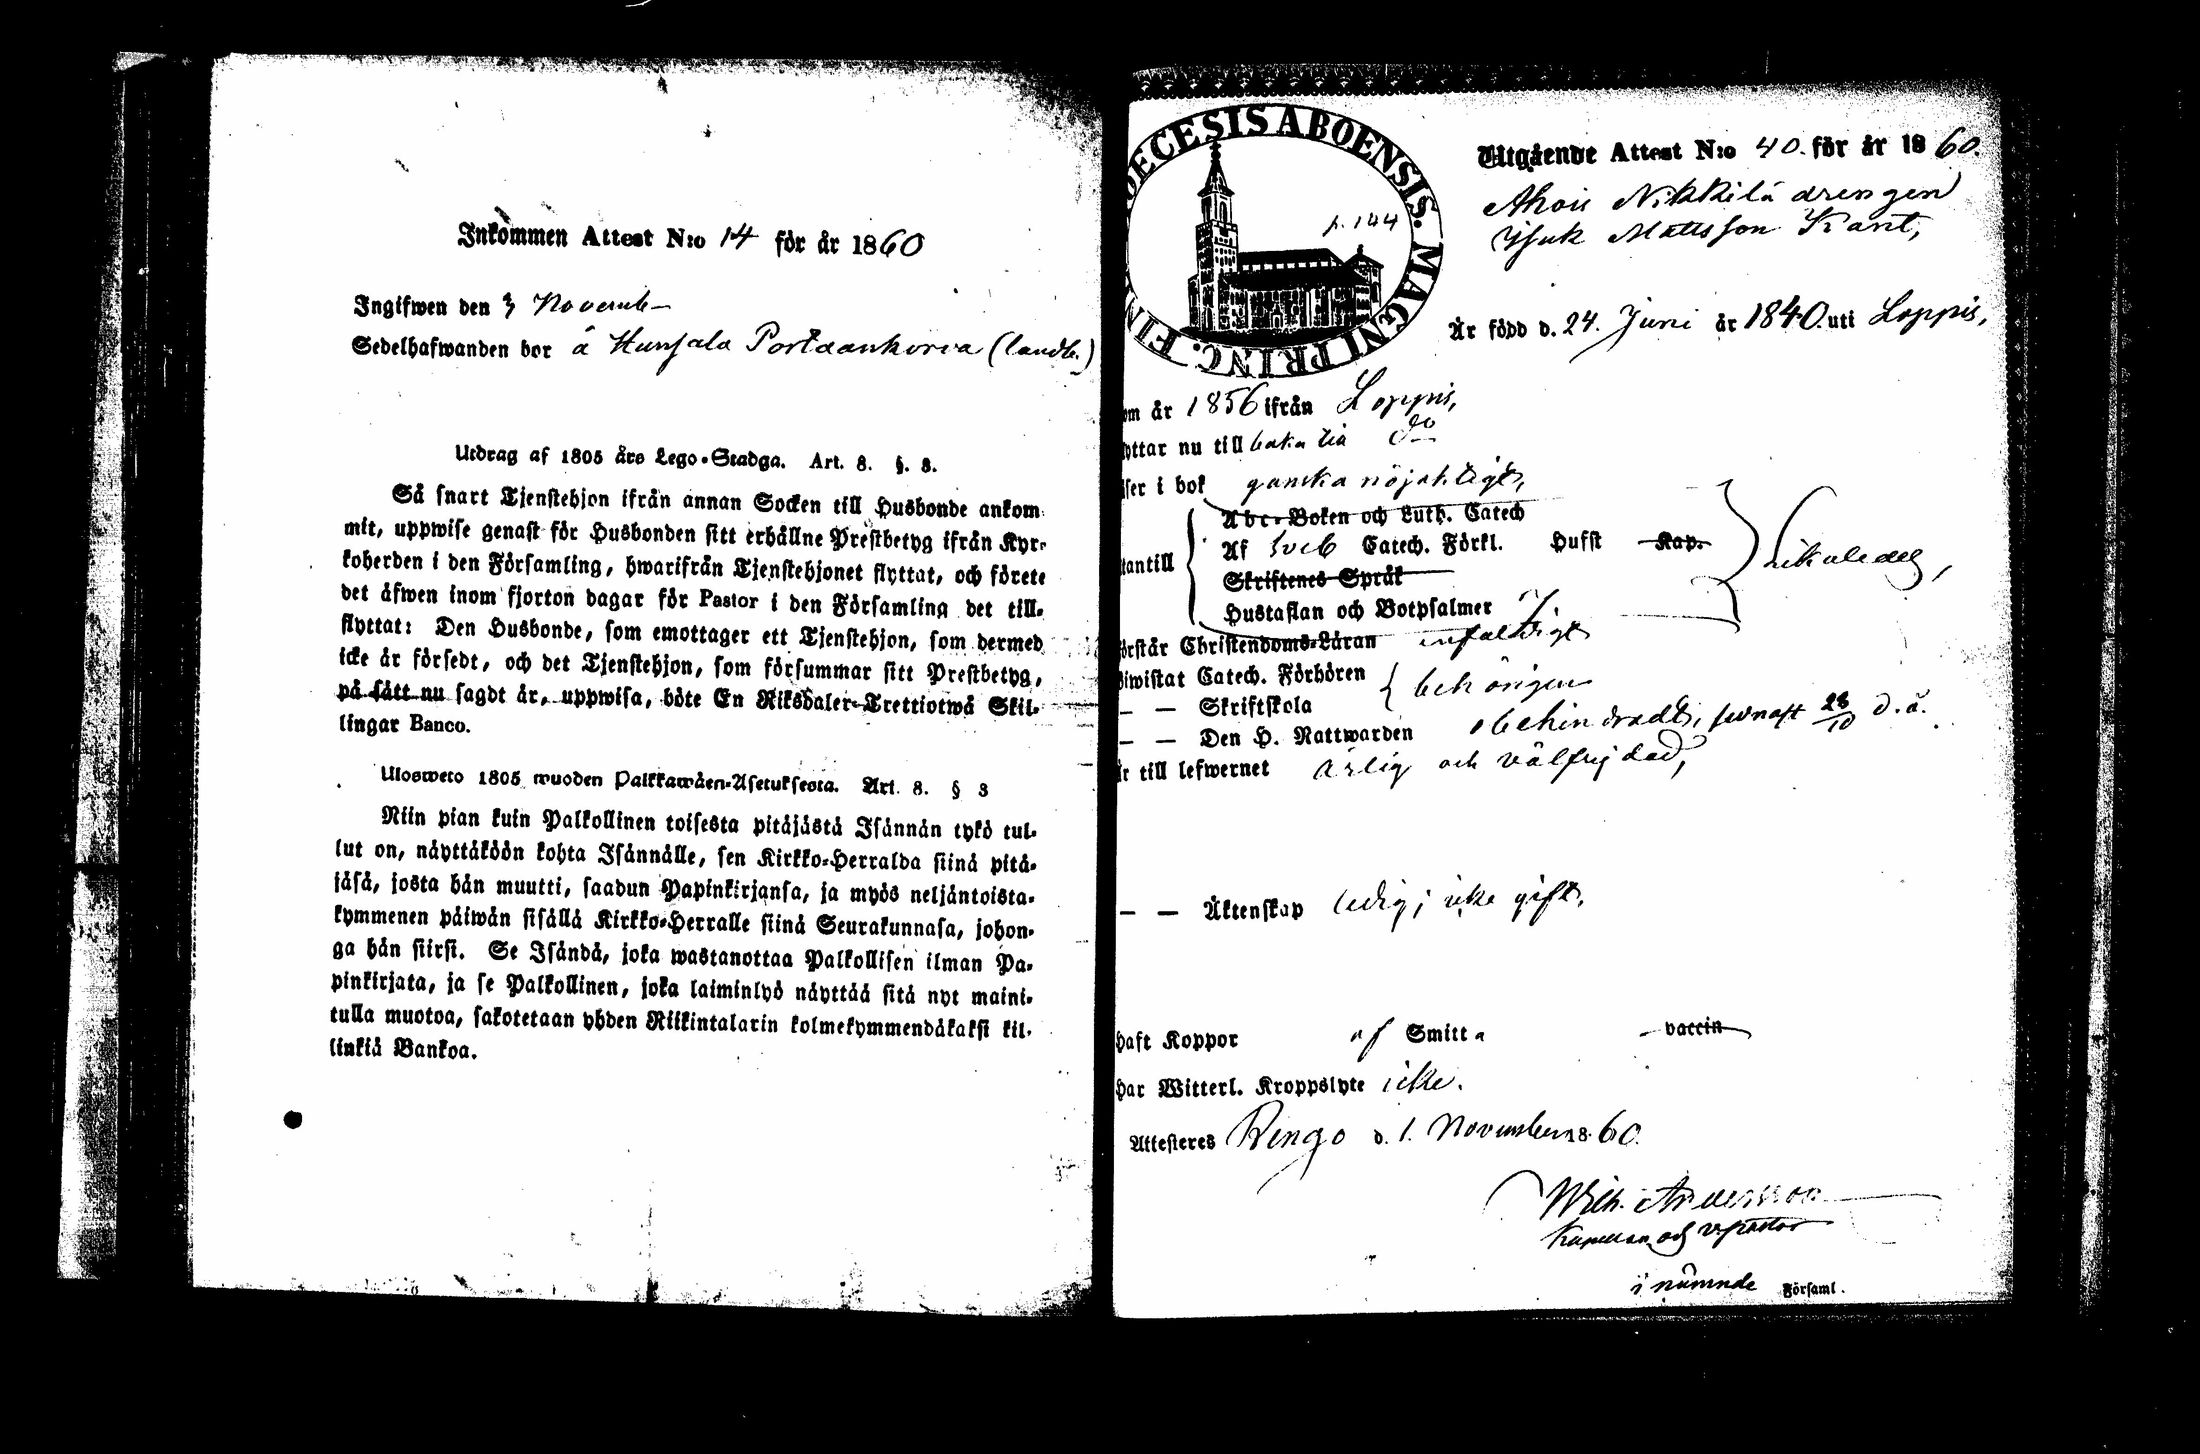 Inkommen Attest N:o 14 för år 1860
Ingifwen den 3 Novemb
Sedelhafwanden bor å Hunsala Portaankorva (landb.)
Utdrag af 1805 års Lego-Stadga. Art. 8. §. 3.
Så snart Tjenstehjon ifrån annan Socken till Husbonde ankom
mit, uppwise genast för Husbonden sitt erhållne Prestbetyg ifrån Kyr-
koherden i den Församling, hwarifrån Tjenstehjonet flyttat, och förete
det äfwen inom fjorton dagar för Pastor i den Församling det till-
flyttat: Den Husbonde, som emottager ett Tjenstehjon, som dermed
icke är försedt, och det Tjenstehjon, som försummar sitt Prestbetyg,
på sätt nu sagdt är, uppwisa, böte En Riksdaler Trettiotwå Skil-
lingar Banco.
Ulosweto 1805 wuoden Palkkawäen-Asetuksesta. Art. 8. § 3
Niin pian kuin Palkollinen toisesta pitäjästä Isännän tykö tul-
lut on, näyttäköön kohta Isännälle, sen Kirkko-Herralda siinä pitä-
jäsä, josta hän muutti, saadun Papinkirjansa, ja myös neljäntoista-
kymmenen päiwän sisällä Kirkko-Herralle siinä Seurakunnasa, johon-
ga hän siirsi. Se Isändä, joka wastanottaa Palkollisen ilman Pa-
pinkirjata, ja se Palkollinen, joka laiminlyö näyttää sitä nyt maini-
tulla muotoa, sakotetaan yhden Riikintalarin kolmekymmendäkaksi kil-
linkiä Bankoa.
ECESIS ABOENSIS. MAGNI PRINC. FIN
p. 144
Utgående Attest N:o 40. för år 1860.
Ahois Nikkilä drengen
Isak Mattsson Kant,
Är född d. 24. Juni år 1840. uti Loppis,
om år 1856 ifrån Loppis,
yttar nu till baka till do
äser i bok ganska nöjaktigt,
Abc-Boken och Luth. Catech
tantill Af Sveb Catech. Förkl. Husst Kap.
Skriftenes Språk
Hustaflan och Botpsalmer
örstår Christendoms-Läran enfaldigt
biwistat Catech. Förhören behörigen
— — Skriftskola
— — Den H. Nattwarden obehindradt, senast 28/10 d. å.
är till lefwernet ärlig och välfrejdad,
— — Äktenskap ledig; icke gift,
haft Koppor af Smitta vaccin
har Witterl. Kroppslyte icke.
Attesteres Rengo d. 1. November 1860.
Wilh. Andersson
Kapellan och v. pastor
i nämnde Församl.